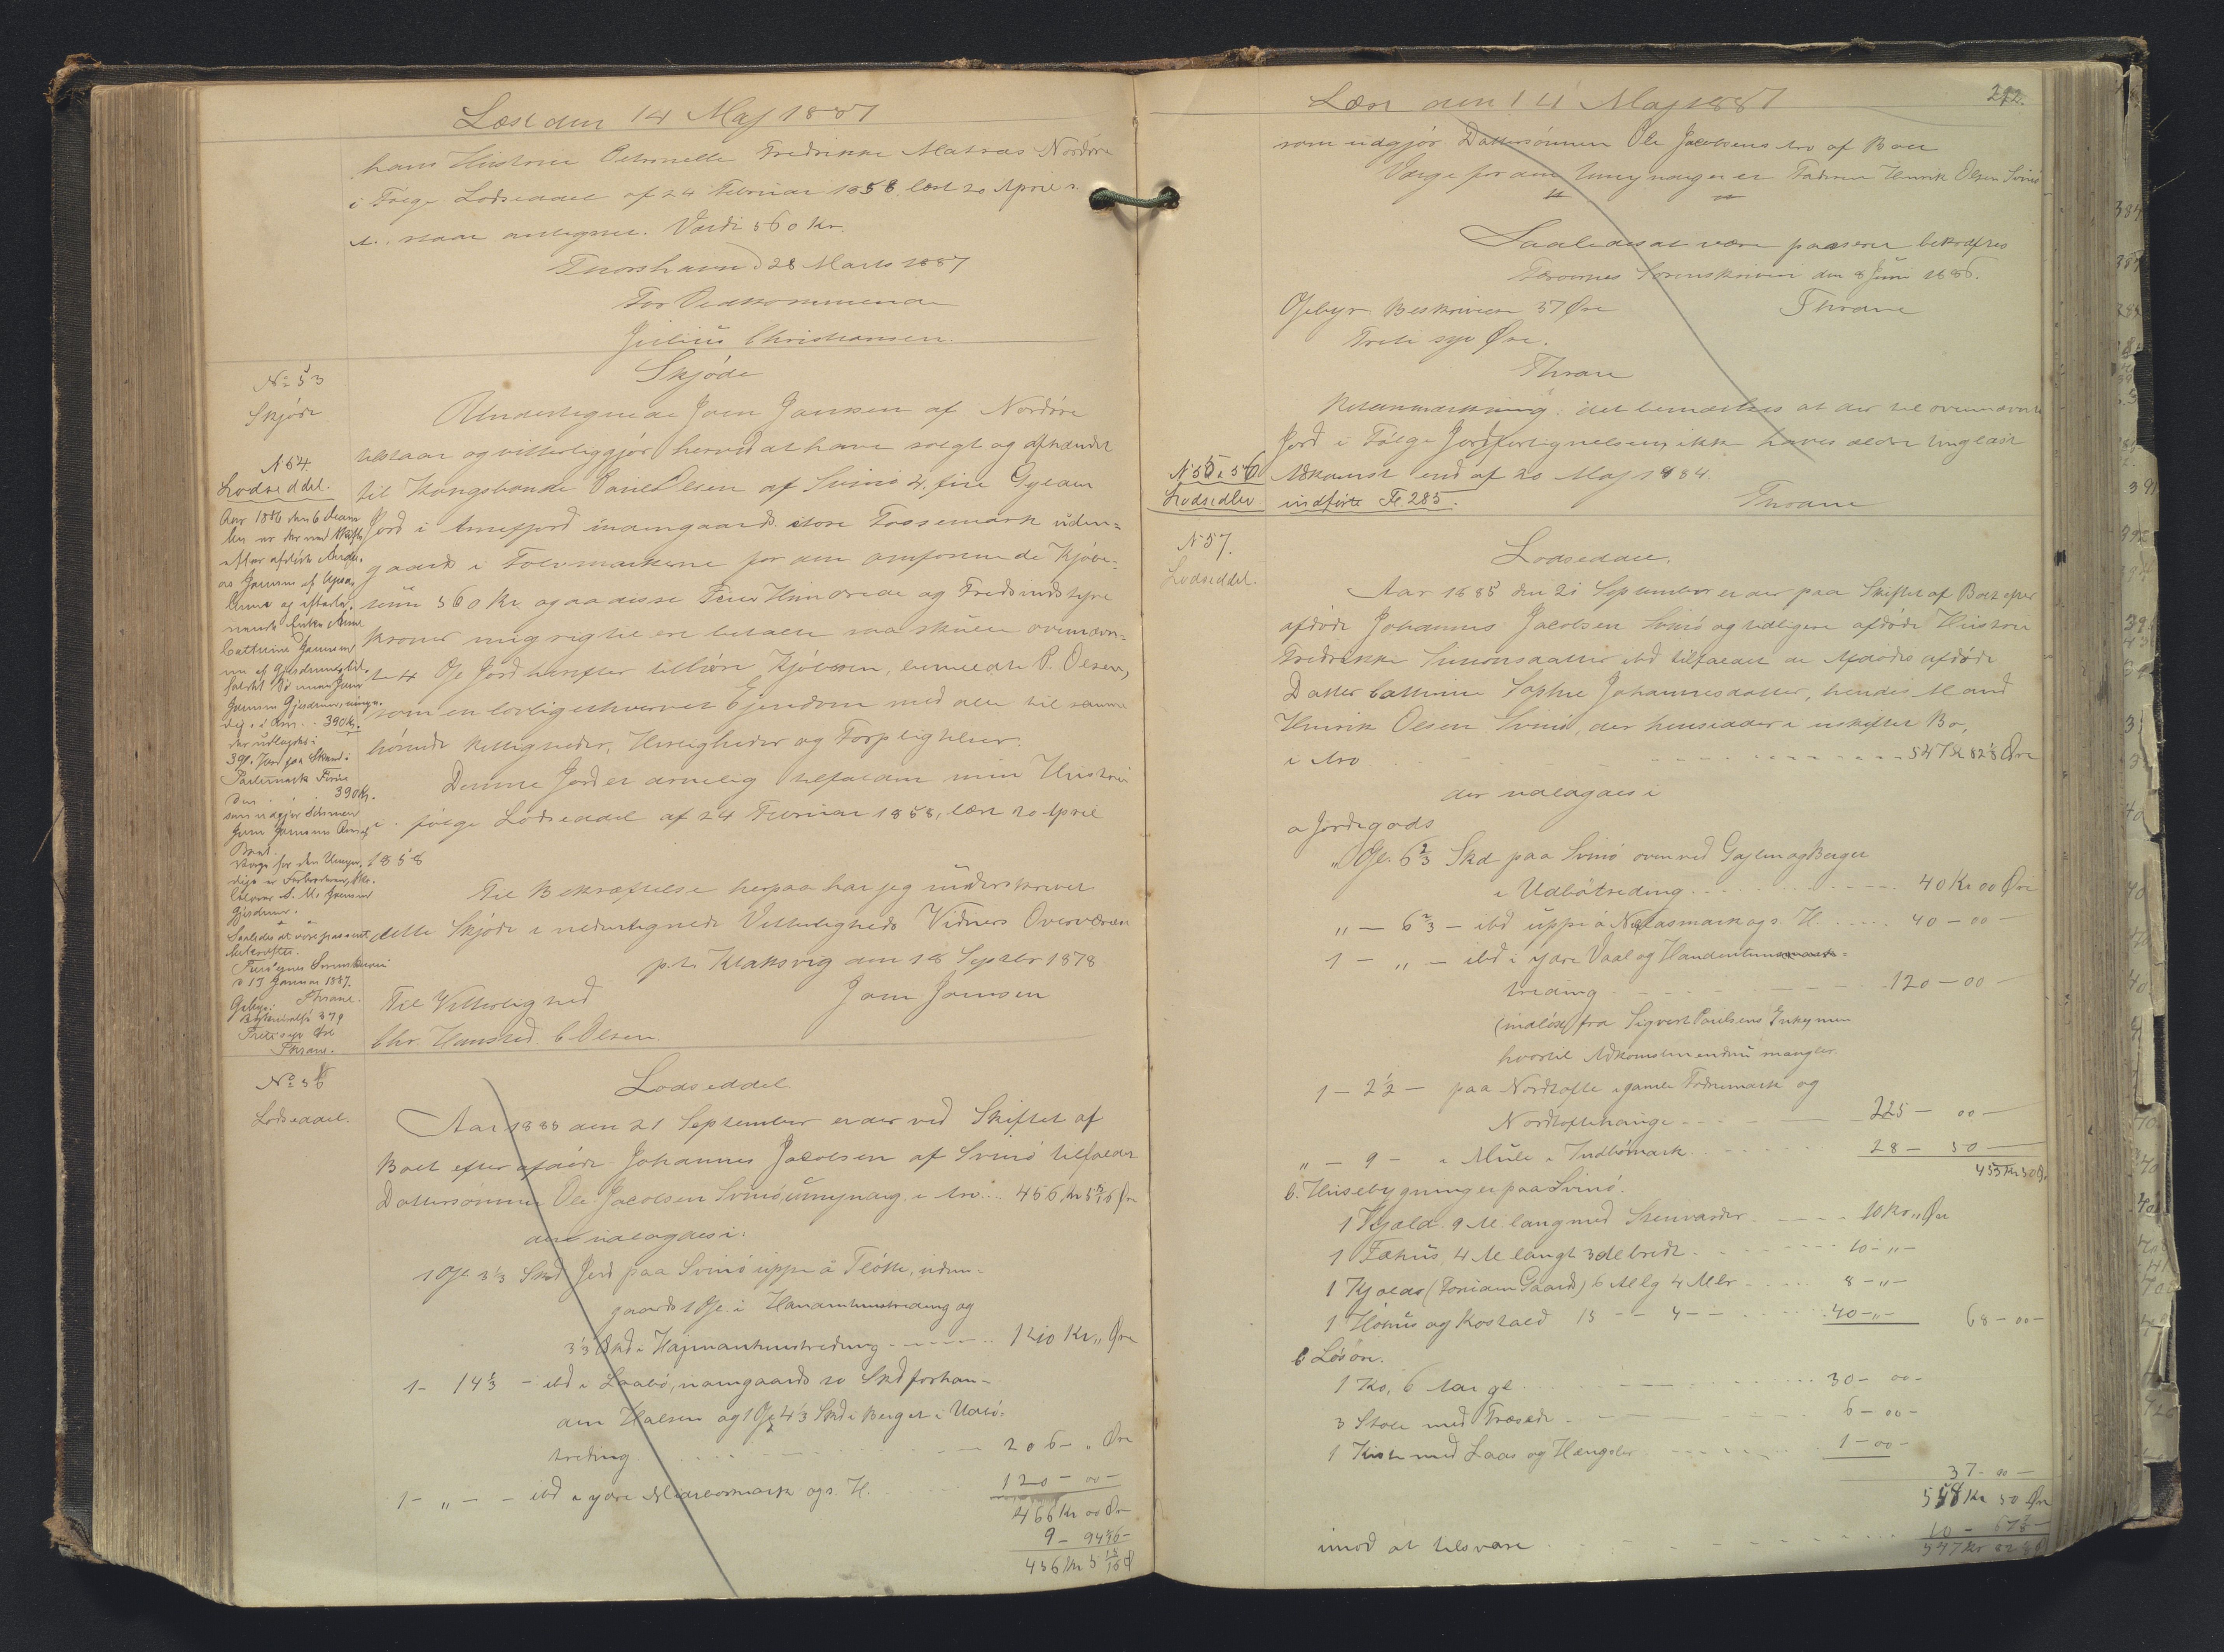 Læst den 14 Maj 1887
hans Hustrue Petronelle Fredrikke Matras Nordøre
i Følge Lodseddel af 24 Februar 1858 læst 20 April s.
A. staar antegnet. Værdi 560 Kr.
Thorshavn d 28 Marts 1887
For Vedkommende
Julius Christiansen.
No 53
Skjøde
Skjøde
Undertegnede Joen Joensen af Nordøre
tilstaar og vitterliggjør herved at have solgt og afhændet
til Kongsbonde Poul Olsen af Svinø 4, fire Gylden
Jord i Arnefjord inamgaards store Tossemark uden-
gaards i Tolvmarkerne for den omforenede Kjøbe-
sum 560 Kr. og da disse Fem Hundrede og Tredsindstyve
Kroner mig rigtil ere betalte saa skulle ovennævn-
te 4 Gl Jord herefter tilhøre Kjøberen, bemeldte P. Olsen,
som en lovlig erhvervet Ejendom med alle til samme
hørende Rettigheder, Herligheder og Forpligtelser.
Denne Jord er arvelig tilfalden min Hustrue
i følge Lodseddel af 24 Februar 1858, læst 20 April
1858
Til Bekræftelse herpaa har jeg underskrevet
dette Skjøde i undertegnede Vitterligheds Vidners Overværelse
p.t. Klaksvig den 18 Septbr 1878
Til Vitterlighed Joen Joensen
Chr. Hansted. C Olsen.
N 54.
Lodseddel.
Aar 1886 den 6 Decem
ber er der ved Skifte
efter afdøde Andre-
as Joensen af
og efterle-
vende Enke Anne
Cathrine Joensen
af Gjesdrum, til-
faldet Sønnen Joen
Joensen Gjesdrum, umyn-
dig, i Arv. . 390 Kr.
der udlagdes i
3 gl. Jord paa Strand i
390 Kr.
som udgjør Sønnen
Joen Joensens Arv af
Boet.
Værge for den Umyn-
dige er Farbroderen,
J. M. Joensen
Gjesdrum.
Saaledes at være passeret
bekræftes.
Færøernes Sorenskriveri
d 17 Januar 1887.
Thrane.
Gebyr:
Beskrivelse 37 Ø
Treti syv Øre
Thrane.
No 56
Lodseddel.
Lodseddel.
Aar 1885 den 21 September er der ved Skiftet af
Boet efter afdøde Johannes Jacobsen af Svinø tilfaldet
Dattersønnen Ole Jacobsen Svinø, umyndig, i Arv .. 456 Kr 5 15/16 Øre
der udlagdes i:
1 Gl. 3 1/3 Skd Jord paa Svinø uppi á Fløtte, uden-
gaards 1 Gl. i Handentunstreding og
3 1/3 Skd i Hajmantunstreding - - - - 140 Kr „ Øre
1 - 14 1/3 - ibd i Laabø, inamgaards 10 Skd forhan-
den Halsen og 1 Gl 4 1/3 Skd i Berget i Udbø-
treding . . . . 206 - „ Øre
1 - „ - - ibd i ydre Midbømark ogs. H. . . . 120 - 00 -
466 Kr 00 Øre
9 - 94 1/16 -
456 Kr 5 15/16 Ø
Læst den 14 Maj 1887
222.
som udgjør Dattersønnen Ole Jacobsens Arv af Boet
Værge for den Umyndige er Faderen Henrik Olsen Svinø
Saaledes at være passeret bekræftes
Færøernes Sorenskriveri den 8 Juni 1886.
Gebyr. Beskrivelse 37 Øre Thrane
Treti syv Øre.
Thrane
Retsanmærkning: det bemærkes at der til ovennævnte
Jord i Følge Jordfortegnelsen ikke haves ældre tinglæst
Adkomst end af 20 Maj 1884.
Thrane
N 55 & 56
Lodsedler indførte Fl. 285.
N 57.
Lodseddel.
Lodseddel.
Aar 1885 den 21 September er der paa Skiftet af Boet efter
afdøde Johannes Jacobsen Svinø og tidligere afdøde Hustrue
Fredrikke Simonsdatter ibd tilfaldet de Afdødes afdøde
Datter Cathrine Sophie Johannesdatter, hendes Mand
Henrik Olsen Svinø, der hensidder i uskiftet Bo,
i Arv . . . . . 547 Kr 82 1/8 Øre
der udlagdes i
a Jordegods
„ Gl. 6 2/3 Skd paa Svinø oven ved Gajlen og Berget
i Udbøtreding . . . . . 40 Kr 00 Øre
„ - 6 2/3 - ibd uppi á Nakasmark ogs. H. . . . . 40 - 00 -
1 - „ - ibd i ydre Vaal og Handentuns-
treding . . . . . 120 - 00 -
(indløst) fra Sigvert Poulsens Enkemen
hvortil Adkomsten endnu mangler.
1 - 2 1/2 - paa Nordtofte i gamle Fødremark og
Nordtoftehauge - - - - 225 - 00 -
„ - 9 - i Mule i Indbømark . . . . 28 - 50 -
453 Kr 50 Ø.
b. Husebygninger paa Svinø.
1 Kjald 9 Al. lang med Stenvarder . . . 10 Kr „ Øre
1 Fæhus 4 Al langt 3 Al bredt . . . 10 - „ -
1 Kjalds (Foniden Gaard) 6 Al lg 4 Al br . . . 8 - „ -
1 Høhus og Kostald 15 - - 4 - - . . . 40 - „ - 68 - 00 -
c Løsøre.
1 Ko, 6 Aar gl. . . . . 30 - 00 -
3 Stole med Træsæde . . . 6 - 00 -
1 Kiste med Laas og Hængsler . . . 1 - 00 -
37 - 00 -
558 Kr 50 Øre
imod at tilsvare . . . . 10 - 67 7/8 -
547 Kr 82 1/8 Ø